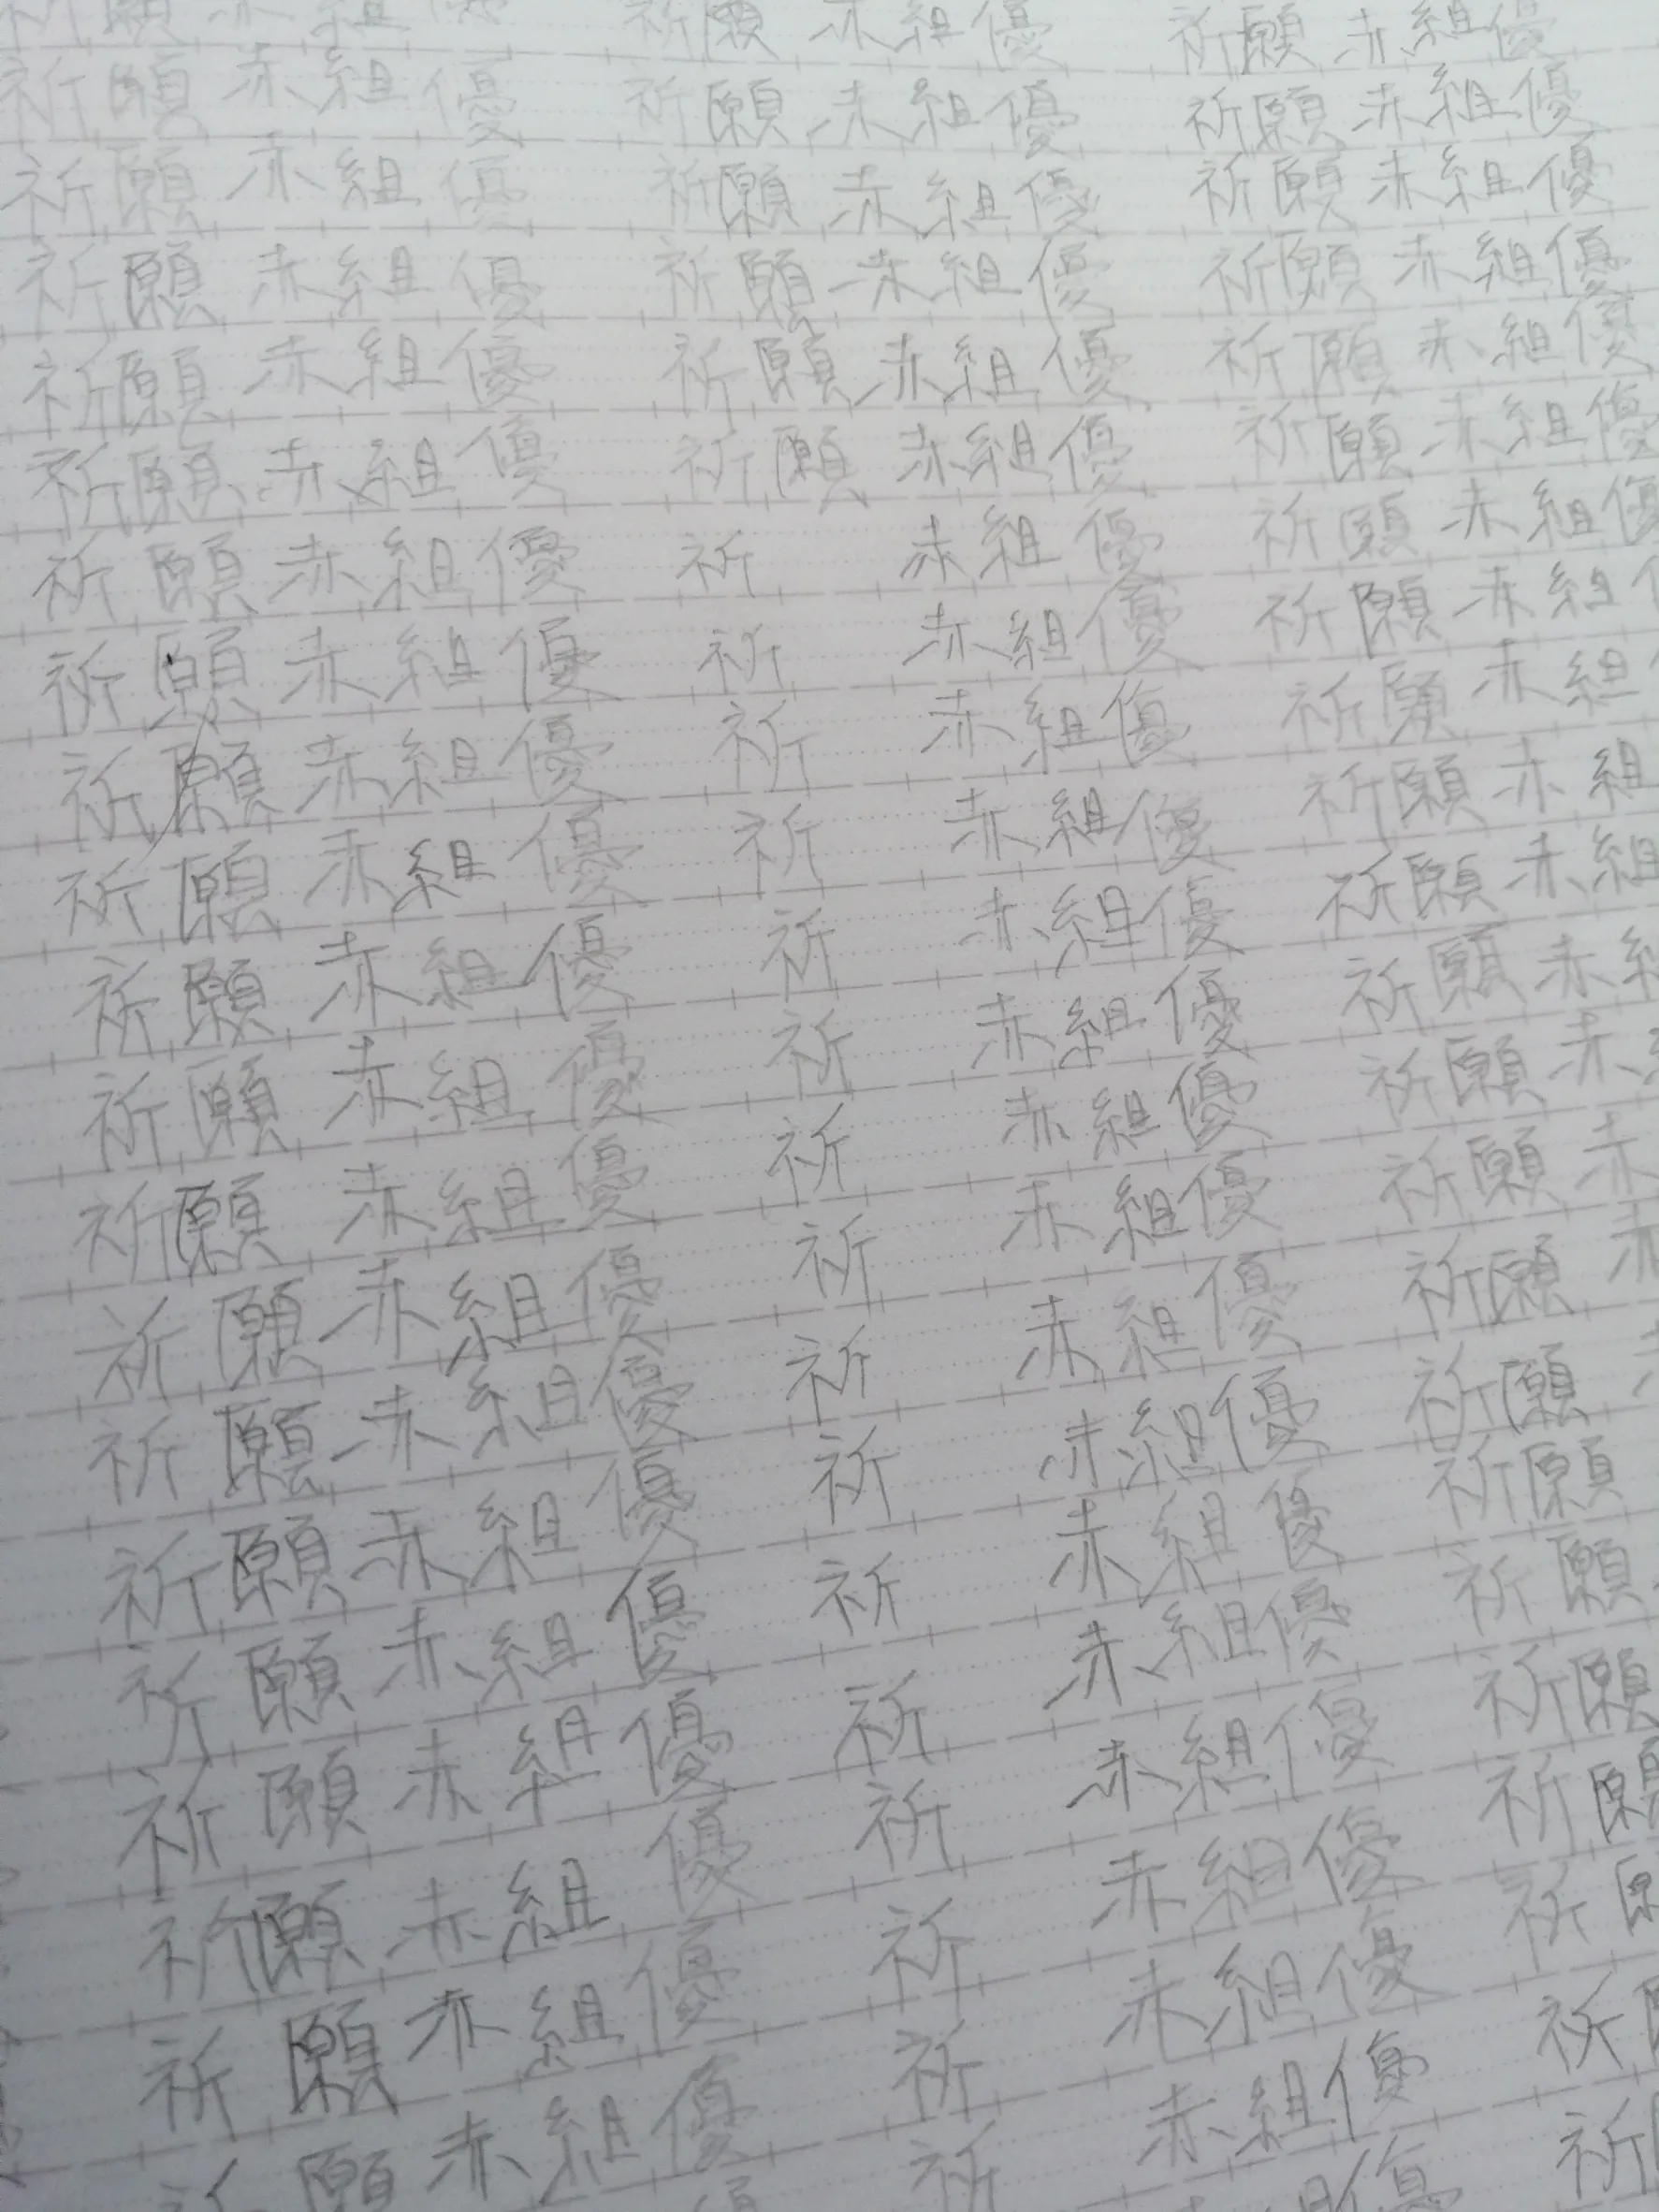 願 赤 組 優 祈 願 赤 組 優 祈 願 赤 組 優
祈 願 赤 組 優 祈 願 赤 組 優 祈 願 赤 組 優
祈 願 赤 組 優 祈 願 赤 組 優 祈 願 赤 組 優
祈 願 赤 組 優 祈 願 赤 組 優 祈 願 赤 組 優
祈 願 赤 組 優 祈 願 赤 組 優 祈 願 赤 組 優
祈 願 赤 組 優 祈 願 赤 組 優 祈 願 赤 組 優
祈 願 赤 組 優 祈 赤 組 優 祈 願 赤 組 優
祈 願 赤 組 優 祈 赤 組 優 祈 願 赤 組
祈 願 赤 組 優 祈 赤 組 優 祈 願 赤 組
祈 願 赤 組 優 祈 赤 組 優 祈 願 赤 組
祈 願 赤 組 優 祈 赤 組 優 祈 願 赤 組
祈 願 赤 組 優 祈 赤 組 優 祈 願 赤
祈 願 赤 組 優 祈 赤 組 優 祈 願 赤
祈 願 赤 組 優 祈 赤 組 優 祈 願 赤
祈 願 赤 組 優 祈 赤 組 優 祈 願 赤
祈 願 赤 組 優 祈 赤 組 優 祈 願
祈 願 赤 組 優 祈 赤 組 優 祈 願
祈 願 赤 組 優 祈 赤 組 優 祈 願
祈 願 赤 組 優 祈 赤 組 優 祈 願
祈 願 赤 組 優 祈 赤 組 優 祈 願
祈 願 赤 組 優 祈 赤 組 優 祈
願 赤 組 優 祈 赤 組 優 祈